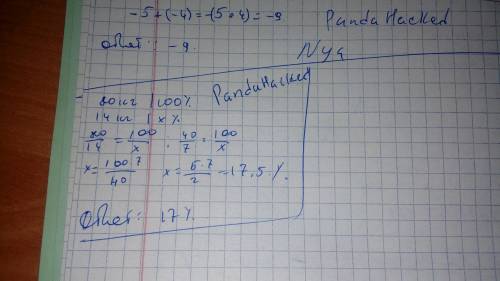 -5+(-4)=-(5+4)=-9 PandaHacked
Ответ: -9. Nya
80 кг | 100% PandaHacked
14 кг | x%
80/14 = 100/x ; 40/7 = 100/x
x = 100·7/40 x = 5·7/2 = 17,5%.
Ответ: 17%